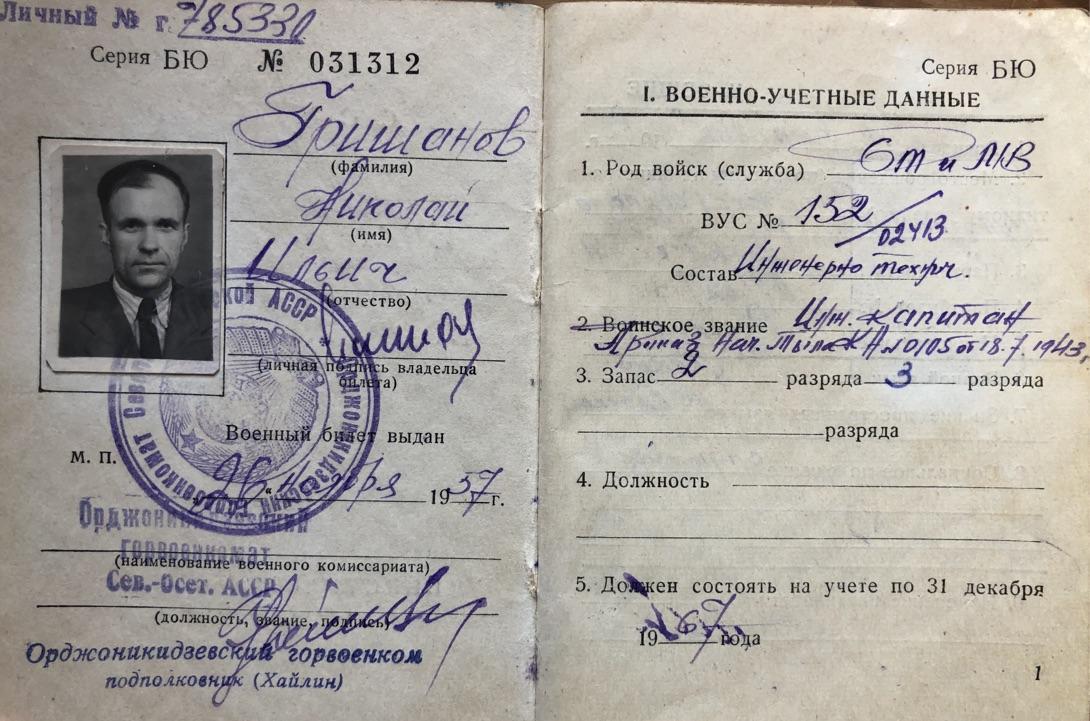 Личный № г. 785330
Серия БЮ № 031312
Гришанов
(фамилия)
Николай
(имя)
Ильич
(отчество)
(личная подпись владельца билета)
Военный билет выдан
м. п.
"26" ноября 1957 г.
Орджоникидзевский
горвоенкомат
(наименование военного комиссариата)
Сев.-Осет. АССР
(должность, звание, подпись)
Орджоникидзевский горвоенком
подполковник (Хайлин)
Серия БЮ
I. ВОЕННО-УЧЕТНЫЕ ДАННЫЕ
1. Род войск (служба)
ВУС № 152/02413
Состав Инженерно технич.
2. Воинское звание Инж. капитан
Приказ Нач. Тыла КА №0105 от 18.7.1943
3. Запас 2 разряда 3 разряда
разряда
4. Должность
5. Должен состоять на учете по 31 декабря
1967 года
1